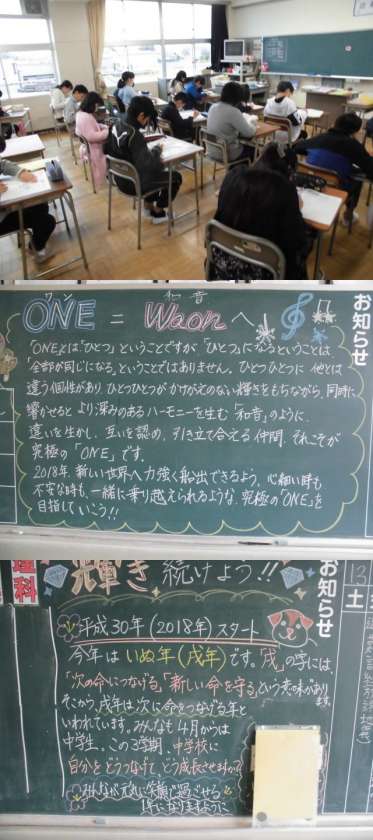 ワン 和音
ONE = Waon へ
お知らせ
「ONE」とは「ひとつ」ということですが、「ひとつ」になるということは
全部が同じになる、ということではありません。ひとつひとつに 他とは
違う個性があり、ひとつひとつが かけがえのない輝きをもちながら、同時に
響かせると より深みのあるハーモニーを生む「和音」のように、
違いを生かし、互いを認め、引き立て合える仲間、それこそが
究極の「ONE」です。
2018年、新しい世界へ力強く船出できるよう、心細い時も
不安な時も、一緒に乗り越えられるような、究極の「ONE」を
目指していこう!!
理科
輝き 続けよう!!
お知らせ
13
土
平成30年(2018年)スタート
今年は いぬ年(戌年)です。「戌」の字には、
「次の命につなげる」「新しい命を守る」という意味があります。
そこから、戌年は次に命をつなげる年と
いわれています。みんなも4月からは
中学生。この3学期、中学校に
自分をどうつなげて どう成長させますか?
みんなが元気に笑顔で過ごせる
1年になりますように